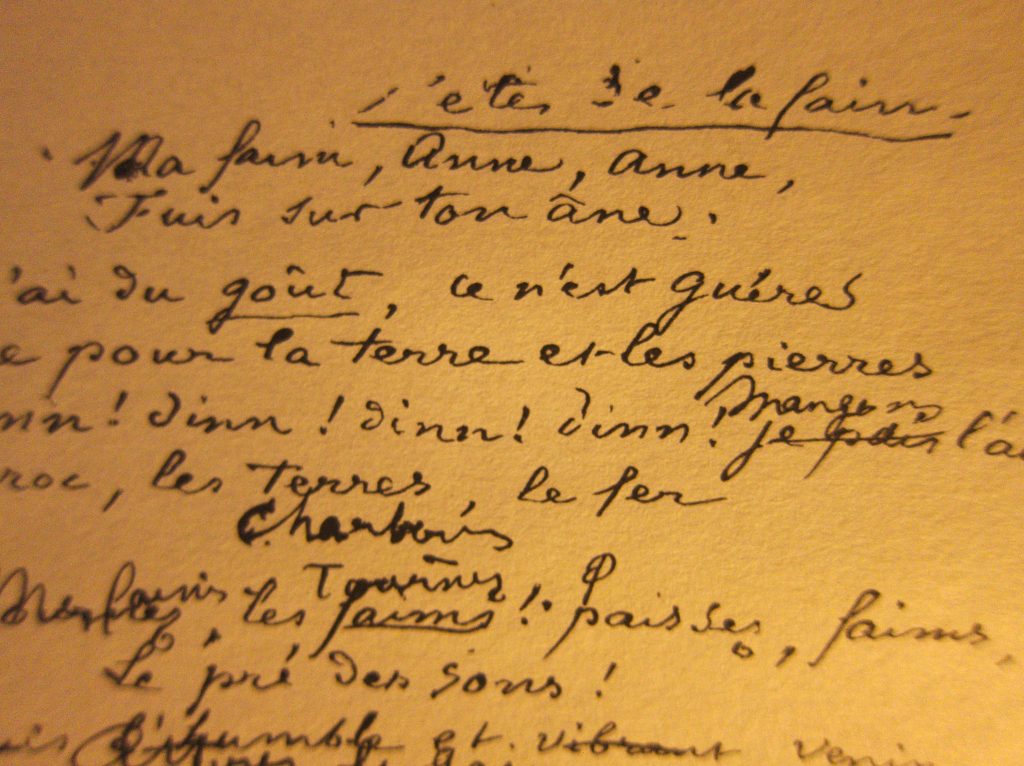 fêtes de la faim
Ma faim, Anne, Anne,
Fuis sur ton âne.
'ai du goût, ce n'est guéres
e pour la terre et les pierres
nn! dinn! dinn! dinn! Mangeons
je pais l'a
roc, les terres, le fer
Charbons
faims, les Tournez,
les faims! paissez, faims,
Le pré des sons!
l'humble et vibrant venin